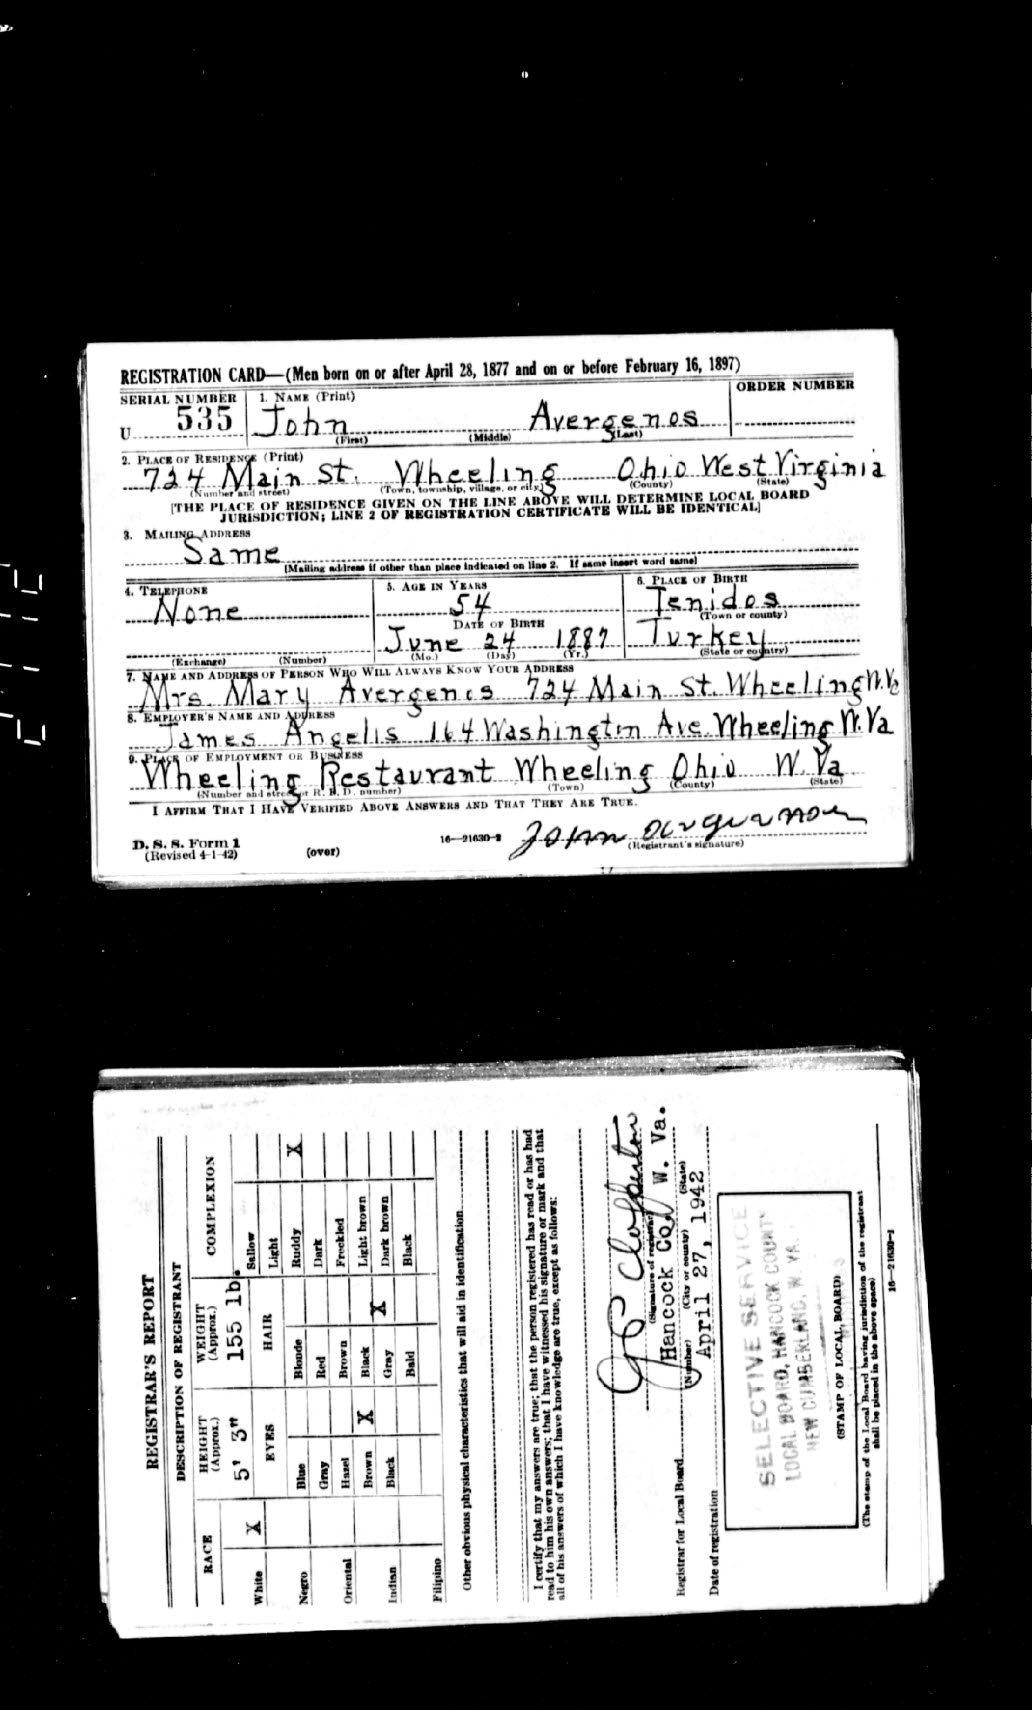 REGISTRATION CARD—(Men born on or after April 28, 1877 and on or before February 16, 1897)
SERIAL NUMBER 1. NAME (Print) ORDER NUMBER
U 535 John Avergenos
(First) (Middle) (Last)
2. PLACE OF RESIDENCE (Print)
724 Main St. Wheeling Ohio West Virginia
(Number and street) (Town, township, village, or city) (County) (State)
[THE PLACE OF RESIDENCE GIVEN ON THE LINE ABOVE WILL DETERMINE LOCAL BOARD
JURISDICTION; LINE 2 OF REGISTRATION CERTIFICATE WILL BE IDENTICAL]
3. MAILING ADDRESS
Same
[Mailing address if other than place indicated on line 2. If same insert word same]
4. TELEPHONE 5. AGE IN YEARS 6. PLACE OF BIRTH
None 54 Tenidos
(Town or county)
DATE OF BIRTH
June 24 1887 Turkey
(Exchange) (Number) (Mo.) (Day) (Yr.) (State or country)
7. NAME AND ADDRESS OF PERSON WHO WILL ALWAYS KNOW YOUR ADDRESS
Mrs. Mary Avergenos 724 Main St. Wheeling W.Va
8. EMPLOYER'S NAME AND ADDRESS
James Angelis 164 Washington Ave Wheeling W.Va
9. PLACE OF EMPLOYMENT OR BUSINESS
Wheeling Restaurant Wheeling Ohio W. Va
(Number and street or R. F. D. number) (Town) (County) (State)
I AFFIRM THAT I HAVE VERIFIED ABOVE ANSWERS AND THAT THEY ARE TRUE.
D. S. S. Form 1
(Revised 4-1-42) (over) 16—21630-2 John
(Registrant's signature)
REGISTRAR'S REPORT
DESCRIPTION OF REGISTRANT
RACE HEIGHT (Approx.) WEIGHT (Approx.) COMPLEXION
5' 3" 155 lb.
White X EYES HAIR Sallow
Light
Negro Blue Blonde Ruddy X
Gray Red Dark
Oriental Hazel Brown Freckled
Brown X Black Light brown
Indian Black Gray X Dark brown
Bald Black
Filipino
Other obvious physical characteristics that will aid in identification
I certify that my answers are true; that the person registered has read or has had
read to him his own answers; that I have witnessed his signature or mark and that
all of his answers of which I have knowledge are true, except as follows:
(Signature of registrar)
Registrar for Local Board Hancock Co. W. Va.
(Number) (City or county) (State)
Date of registration April 27, 1942
SELECTIVE SERVICE
LOCAL BOARD, HANCOCK COUNTY
NEW CUMBERLAND, W. VA.
(STAMP OF LOCAL BOARD)
(The stamp of the Local Board having jurisdiction of the registrant
shall be placed in the above space)
16—21630-1